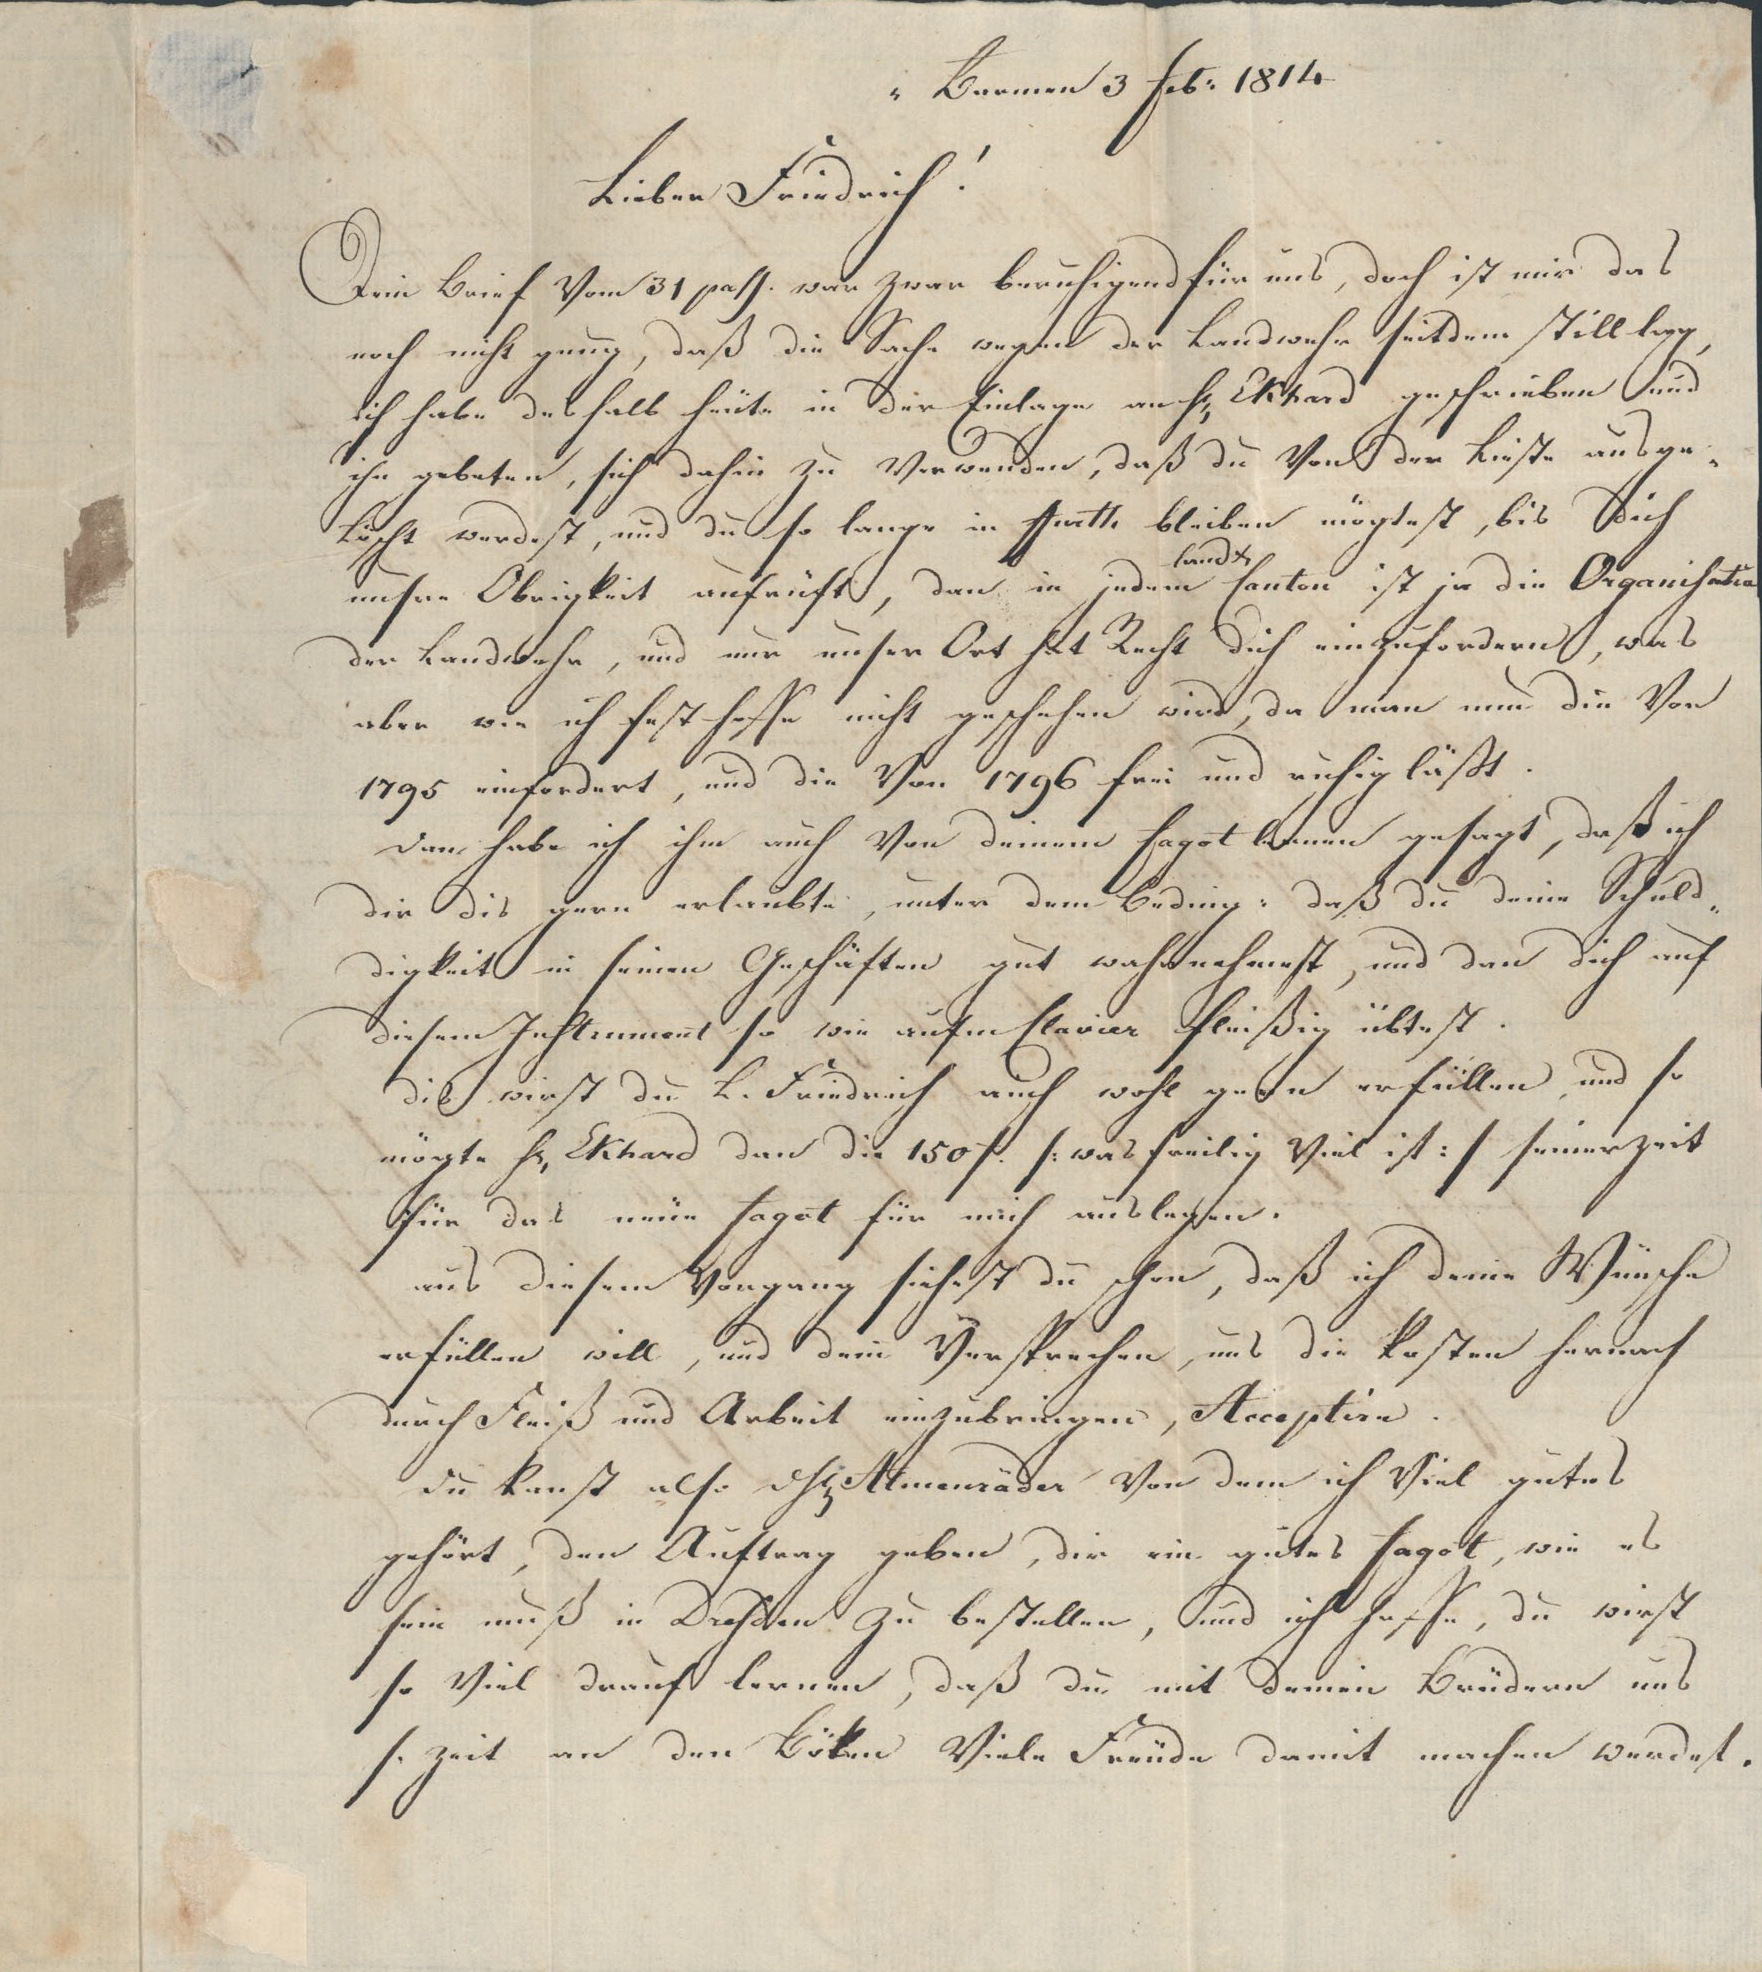 „ Barmen 3 feb: 1814
Lieber Friedrich!
Dein Brief Vom 31 pass. war zwar beruhigend für uns, doch ist mir das
noch nicht genug, daß die Sache wegen der Landwehr seitdem still lag,
ich habe deshalb heüte in der Einlage an H. Ekhard geschrieben und
ihn gebeten, sich dahin zu Verwenden, daß du Von der Lieste ausge„
löscht werdest, und du so lange in bleiben mögtest, bis Dich
unsre Obrigkeit aufrüft, dan in jedem Canton ist ja die Organisation
der Landwehr, und nur unser Ort hat Recht dich einzufordern, was
aber wie ich fest hoffe nicht geschehen wird, da man nun die Von
1795 einfordert, und die Von 1796 frei und ruhig läßt.
dan habe ich ihm auch Von deinem fagot lernen gesagt, daß ich
dir dis gern erlaubte, unter dem Beding: daß du deine Schuld„
digkeit in seinen Geschäften gut wahrnehmest, und dan dich auf
diesem Instrument so wie aufm Clavier fleißig übtest.
dis wirst du L. Friedrich auch wohl gern erfüllen, und so
mögte H. Ekhard dan die 150 f. /: was freilig Viel ist :/ seiner zeit
für das neüe fagot für mich auslegen.
aus diesem Vorgang siehest du schon, daß ich deine Wünsche
erfüllen will, und dein Versprechen, uns die Kosten hernach
durch Fleiß und Arbeit einzubringen, Acceptire.
du kanst also H. Almenräder Von dem ich Viel gutes
gehört, den Auftrag geben, dir ein gutes fagot, wie es
sein muß in Dresden zu bestellen, und ich hoffe, du wirst
so Viel drauf lernen, daß du mit deinen Brüdern uns
s. zeit an den Böken Viele Freüde damit machen werdest.